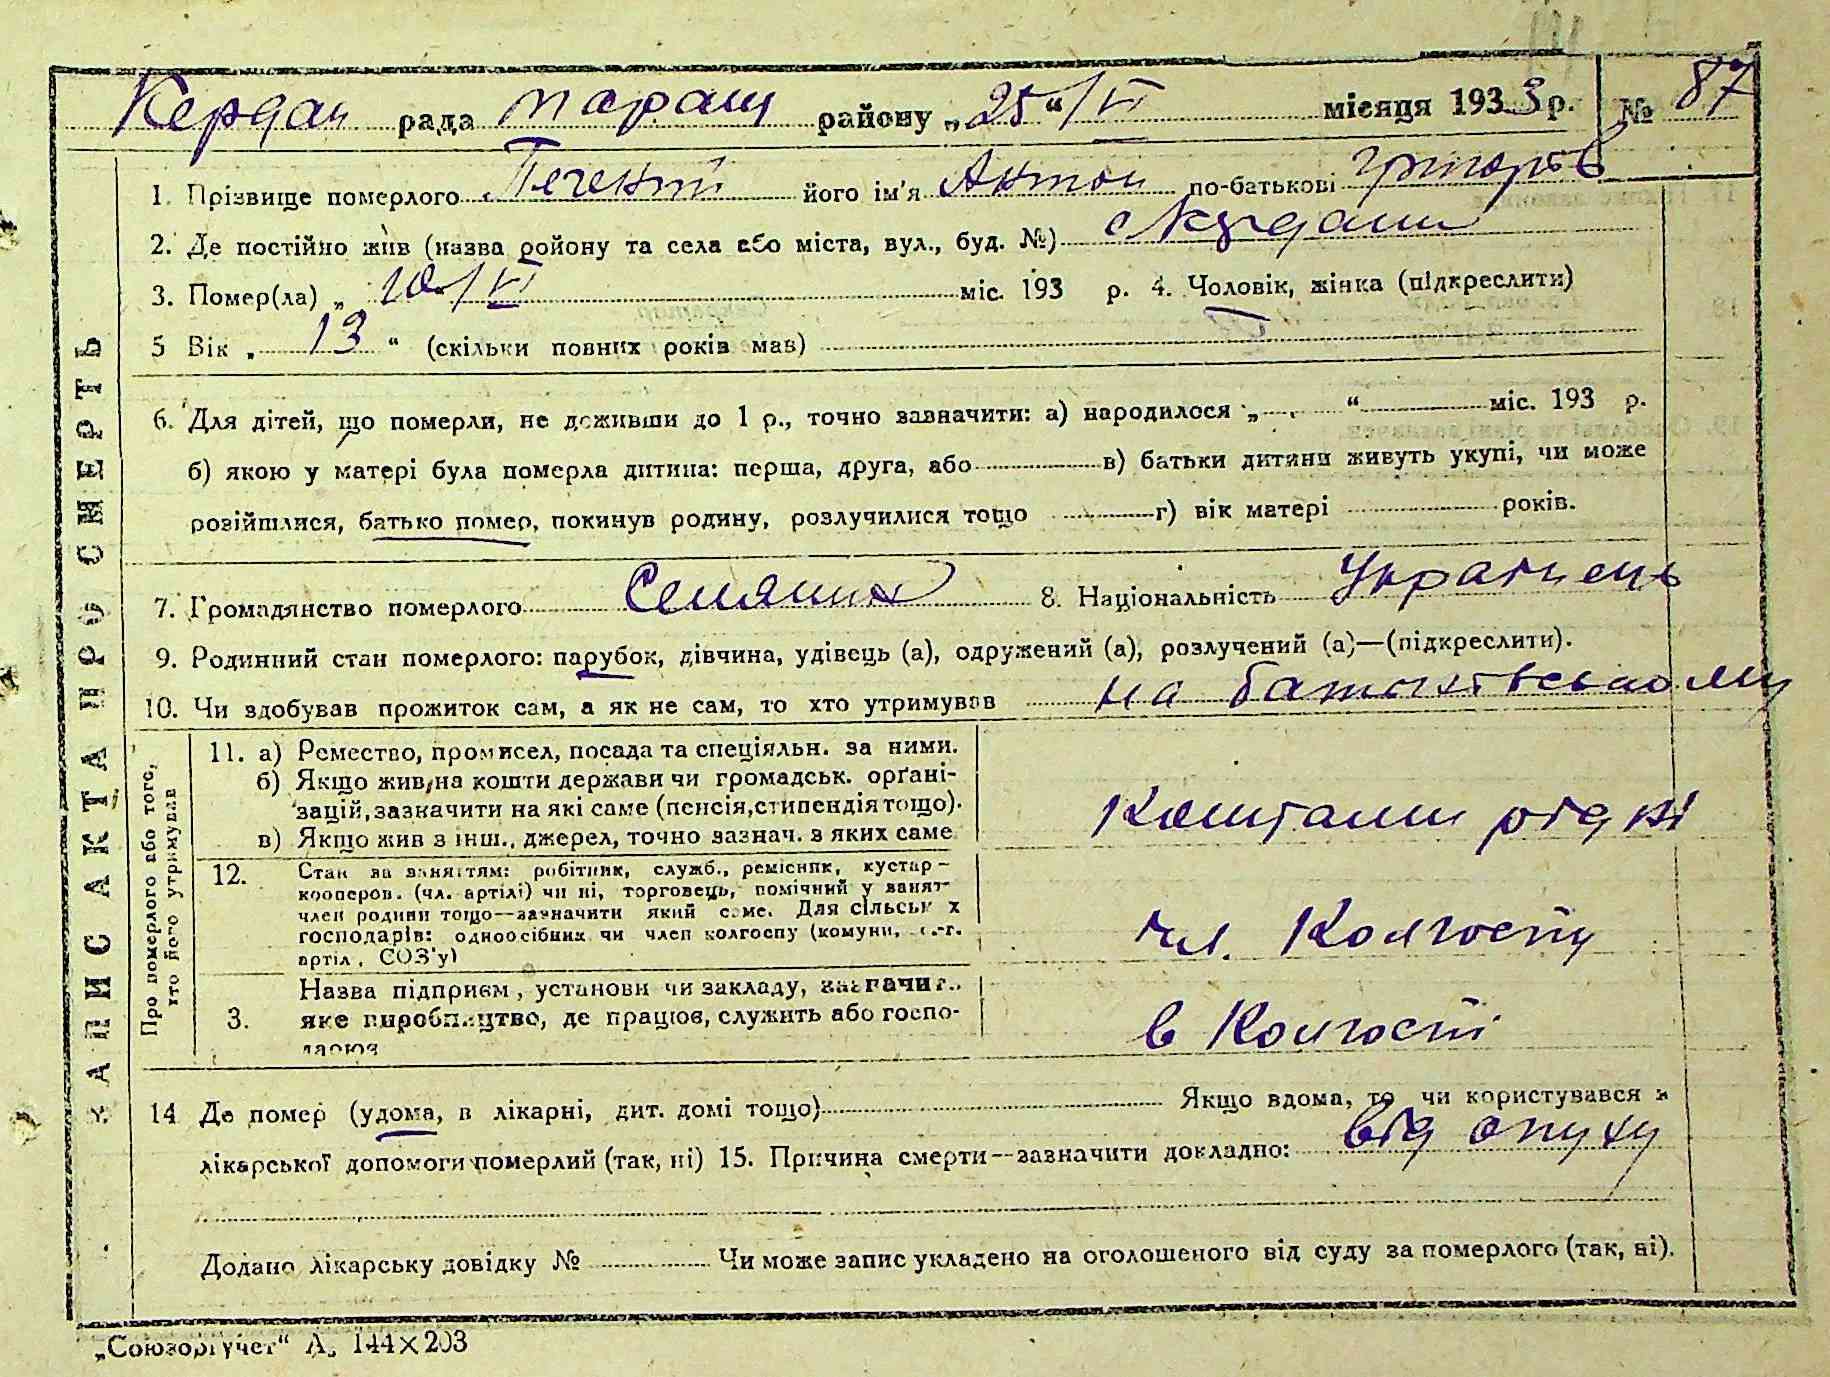 Кердан рада Таращ району „25“/VI місяця 1933 р. № 87
1. Прізвище померлого його ім'я Антон по-батькові Григоров
2. Де постійно жив (назва району та села або міста, вул., буд. №)
3. Помер(ла) „ 10/VI міс. 193 р. 4. Чоловік, жінка (підкреслити)
5 Вік „ 13 “ (скільки повних років мав)
6. Для дітей, що померли, не доживши до 1 р., точно зазначити: а) народилося „ “ міс. 193 р.
б) якою у матері була померла дитина: перша, друга, або в) батьки дитини живуть укупі, чи може
розійшлися, батько помер, покинув родину, розлучилися тощо г) вік матері років.
7. Громадянство померлого Селянин 8. Національність Украінець
9. Родинний стан померлого: парубок, дівчина, удівець (а), одружений (а), розлучений (а)—(підкреслити).
10. Чи здобував прожиток сам, а як не сам, то хто утримував на батьківському
ЗАПИС АКТА ПРО СМЕРТЬ
Про померлого або того, хто його утримував
11. а) Ремество, промисел, посада та спеціяльн. за ними.
б) Якщо жив на кошти держави чи громадськ. орґані-
зацій, зазначити на які саме (пенсія, стипендія тощо).
в) Якщо жив з інш., джерел, точно зазнач. з яких саме
Коштами рідні
12. Стан за заняттям: робітник, служб., ремісник, кустар-
кооперов. (чл. артілі) чи ні, торговець, помічний у занят-
член родини тощо—зазначити який саме. Для сільськ х
господарів: одноосібник чи член колгоспу (комуни, с.-г.
артіл, СОЗ'у)
чл. Колгоспу
3. Назва підприєм, установи чи закладу, зазначит.,
яке виробництво, де працюв, служить або госпо-
дарюв
в Колгоспі
14 Де помер (удома, в лікарні, дит. домі тощо) Якщо вдома, то чи користувався з
лікарської допомоги померлий (так, ні) 15. Причина смерти--зазначити докладно: від опуху
Додано лікарську довідку № Чи може запис укладено на оголошеного від суду за померлого (так, ні).
„Союзоргучет“ А, 144×203